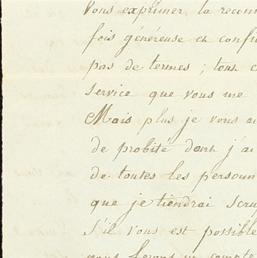 Vous exprimer la reconn
fois généreuse et confi
pas de termes; tout c
service que vous me
Mais plus je vous a
de probité dont j'ai
de toutes les personn
que je tiendrai scru
S'il vous est possible
nous ferons un compte